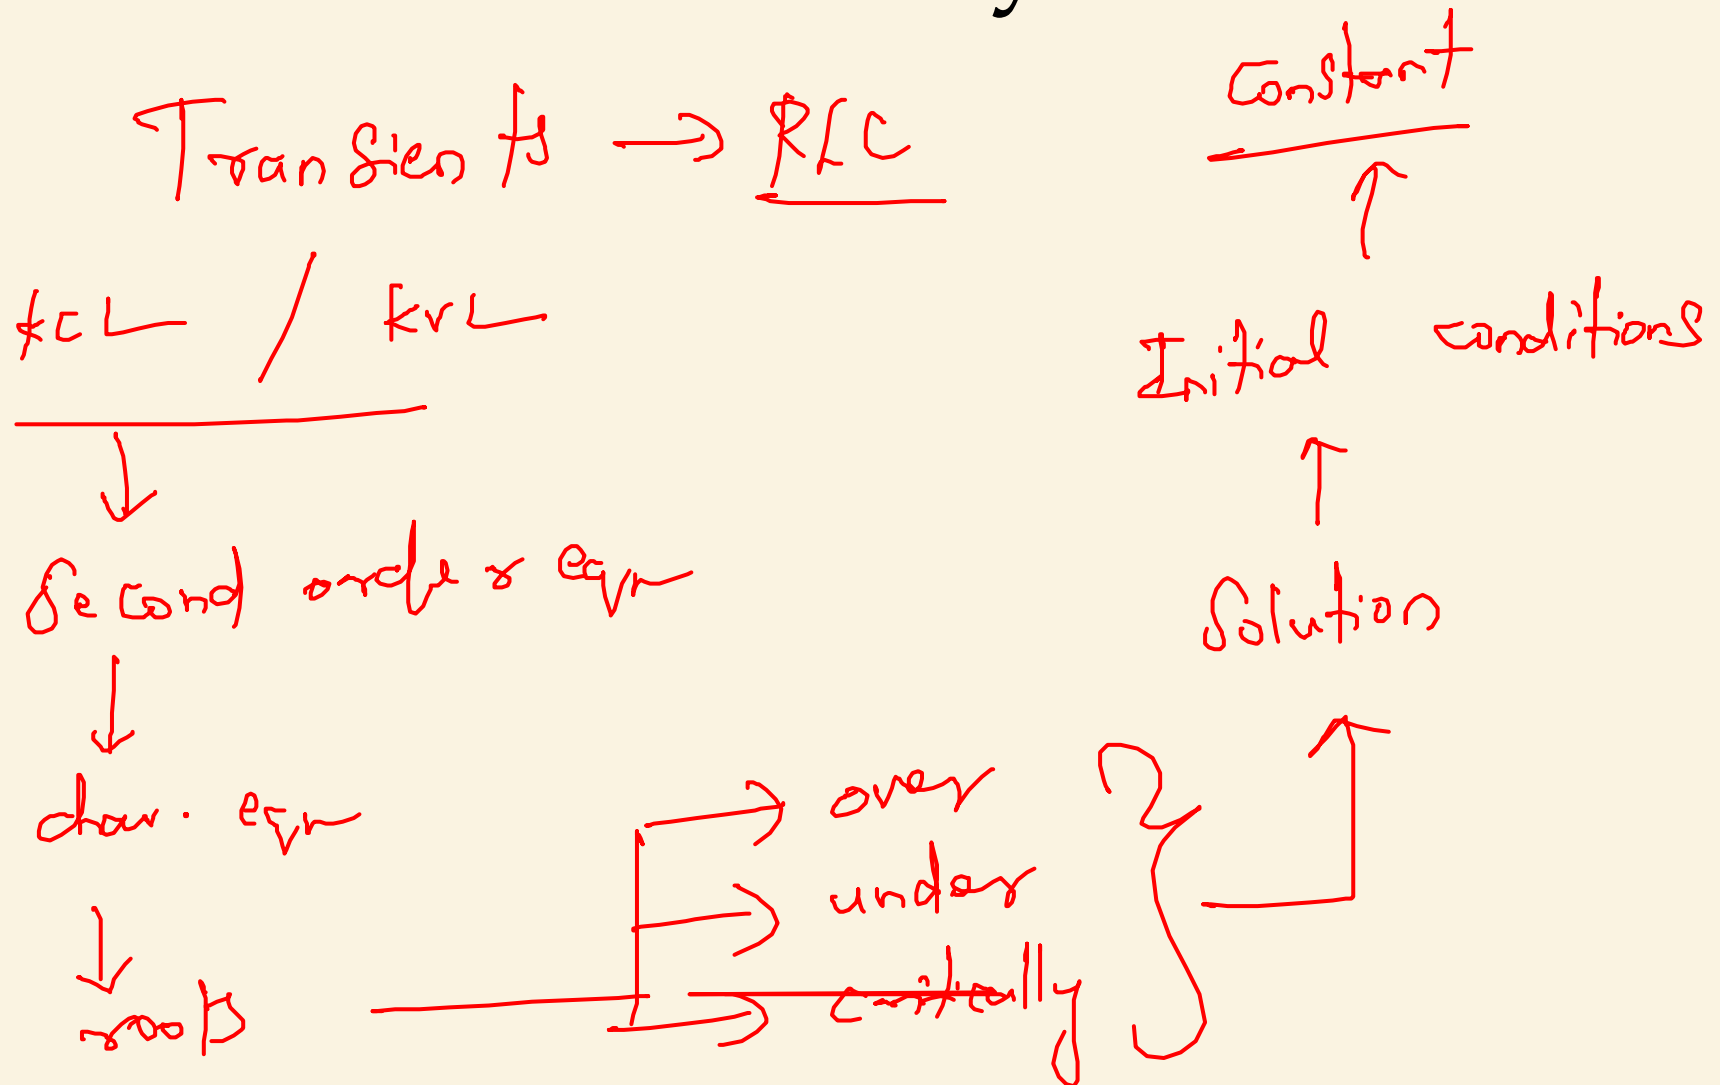 Transients → RLC
KCL / KVL
Second order eqn
char. eqn
roots
over
under
critically
Solution
Initial conditions
Constant